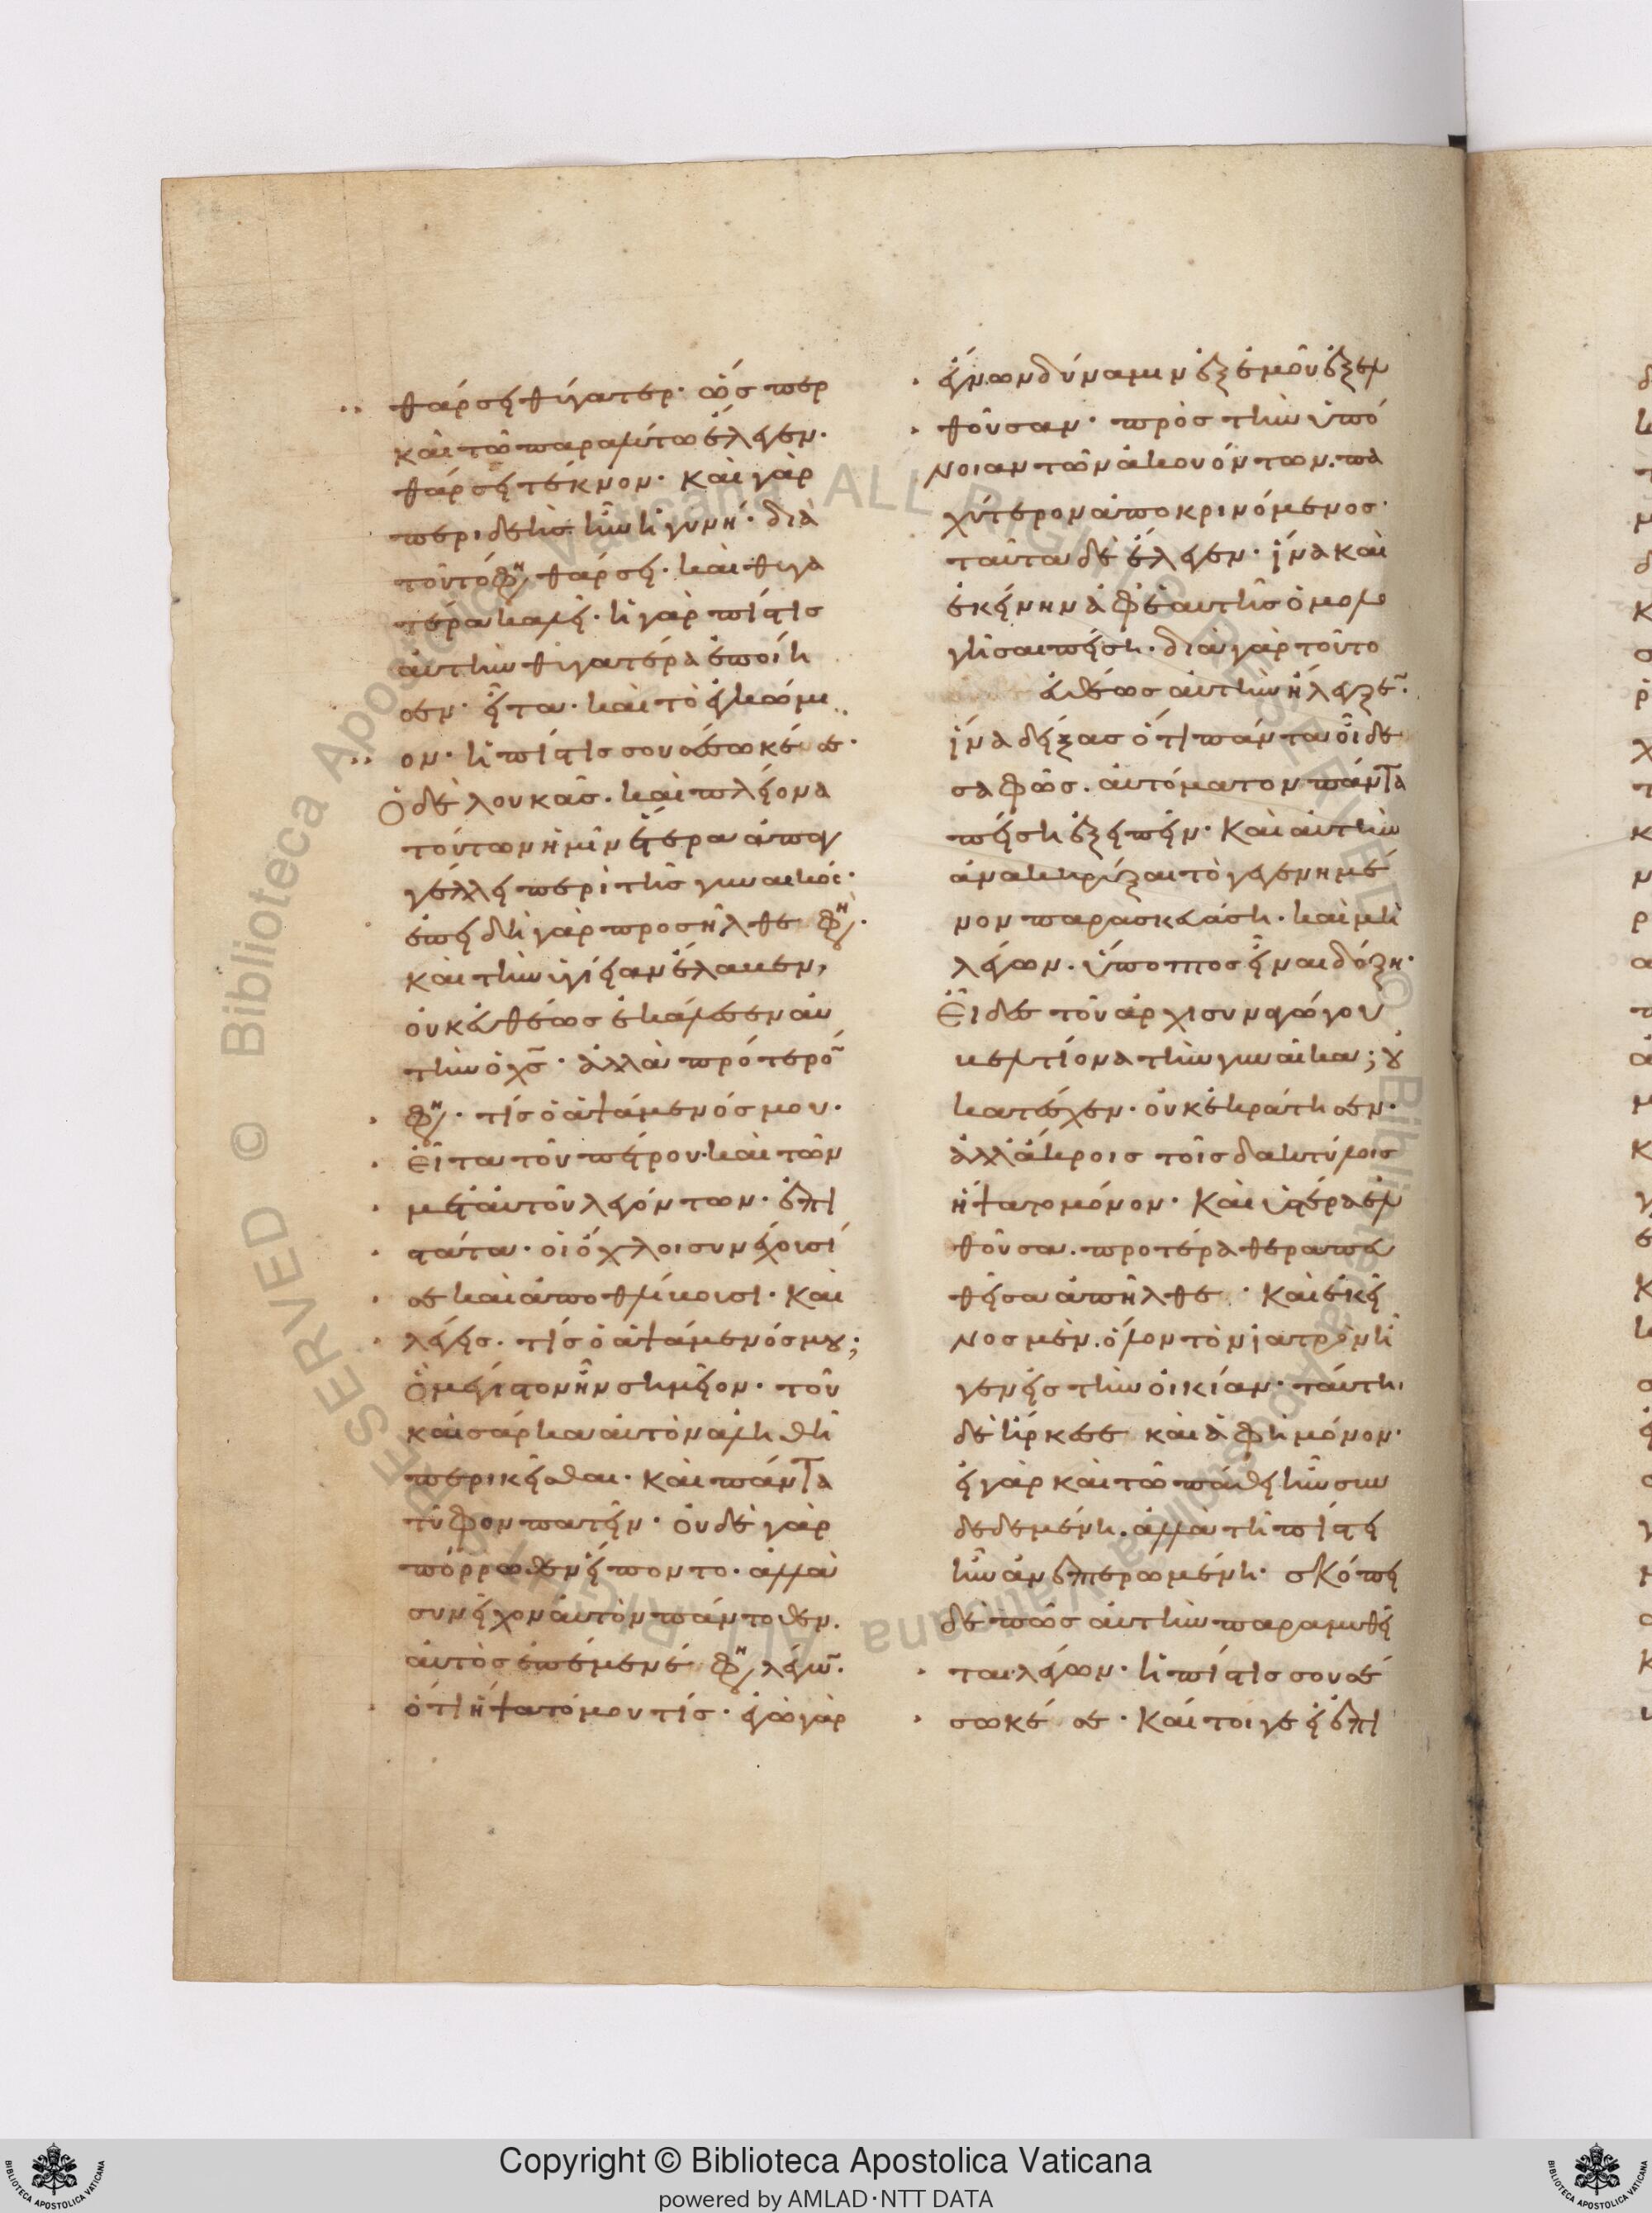 θάρσει θύγατερ· ὥσπερ
καὶ τῶ παραλύτω ἔλεγεν·
θάρσει τέκνον· καὶ γὰρ
περιδεὴς ἦν ἡ γυνή· διὰ
τοῦτό φη θάρσει· καὶ θυγα
τέρα καλεῖ· ἡ γὰρ πίστις
αὐτὴν θυγατέρα ἐποίη
σεν· εἶτα· καὶ τὸ ἐγκώμι
ον· ἡ πίστις σου σέσωκέ σε·
Ὁ δὲ λουκᾶς· καὶ πλείονα
τούτων ἡμῖν ἕτερα ἀπαγ
γέλλει περὶ τῆς γυναικός·
ἐπειδὴ γὰρ προσῆλθε φη·
καὶ τὴν ὑγίειαν ἔλαβεν,
οὐκ εὐθέως ἐκάλεσεν αὐ
τὴν ὁ χσ· ἀλλὰ πρότερο
φη· τίς ὁ ἁψάμενός μου·
Εἶτα τοῦ πέτρου· καὶ τῶν
μετ αὐτοῦ λεγόντων· ἐπι
στάτα· οἱ ὄχλοι συνέχουσί
σε καὶ ἀποθλίβουσι· καὶ
λέγεις· τίς ὁ ἁψάμενός μου;
Ὃ μέγιστον ἦν σημεῖον· τοῦ
καὶ σάρκα αὐτὸν ἀληθῆ
περικεῖσθαι· καὶ πάντα
τῦφον πατεῖν· οὐδὲ γὰρ
πόρρωθεν εἵποντο· ἀλλὰ
συνεῖχον αὐτὸν πάντοθεν.
αὐτὸς ἐπέμενέ φη λέγω·
ὅτι ἥψατό μου τίς· ἐγὼ γὰρ
ἔγνων δύναμιν ἐξ ἐμοῦ ἐξελ
θοῦσαν· πρὸς τὴν ὑπό
νοιαν τῶν ἀκουόντων. πα
χύτερον ἀποκρινόμενος·
ταῦτα δὲ ἔλεγεν· ἵνα καὶ
ἐκείνην ἀφ ἑαυτῆς ὁμολο
γῆσαι πείση· διὰ γὰρ τοῦτο
εὐθέως αὐτὴν ἤλεγξε·
ἵνα δείξας ὅτι πάντα οἶδε
σαφῶς. αὐτόματον πάντα
πείση ἐξειπεῖν· καὶ αὐτὴν
ἀνακηρύξαι τὸ γεγενημέ
νον παρασκευάση· καὶ μὴ
λέγων. ὕποπτος εἶναι δόξη·
Εἶδες τοῦ ἀρχισυναγώγου
βελτίονα τὴν γυναῖκα; οὐ
κατέσχεν· οὐκ ἐκράτησεν·
ἀλλ ἄκροις τοῖς δακτύλοις
ἥψατο μόνον· καὶ ὑστέρα ἐλ
θοῦσα. προτέρα θεραπευ
θεῖσα ἀπῆλθε· καὶ ἐκεῖ
νος μὲν. ὅλον τὸν ἰατρὸν ἦ
γεν εἰς τὴν οἰκίαν· ταύτη
δὲ ἤρκεσε καὶ ἁφὴ μόνον·
εἰ γὰρ καὶ τῶ πάθει ἦν συν
δεδεμένη. ἀλλὰ τῆ πίστει
ἦν ἀνεπτερωμένη· σκόπει
δὲ πῶς αὐτὴν παραμυθεῖ
ται λέγων· ἡ πίστις σου σέ
σωκέ σε· καίτοιγε εἰ ἐπι